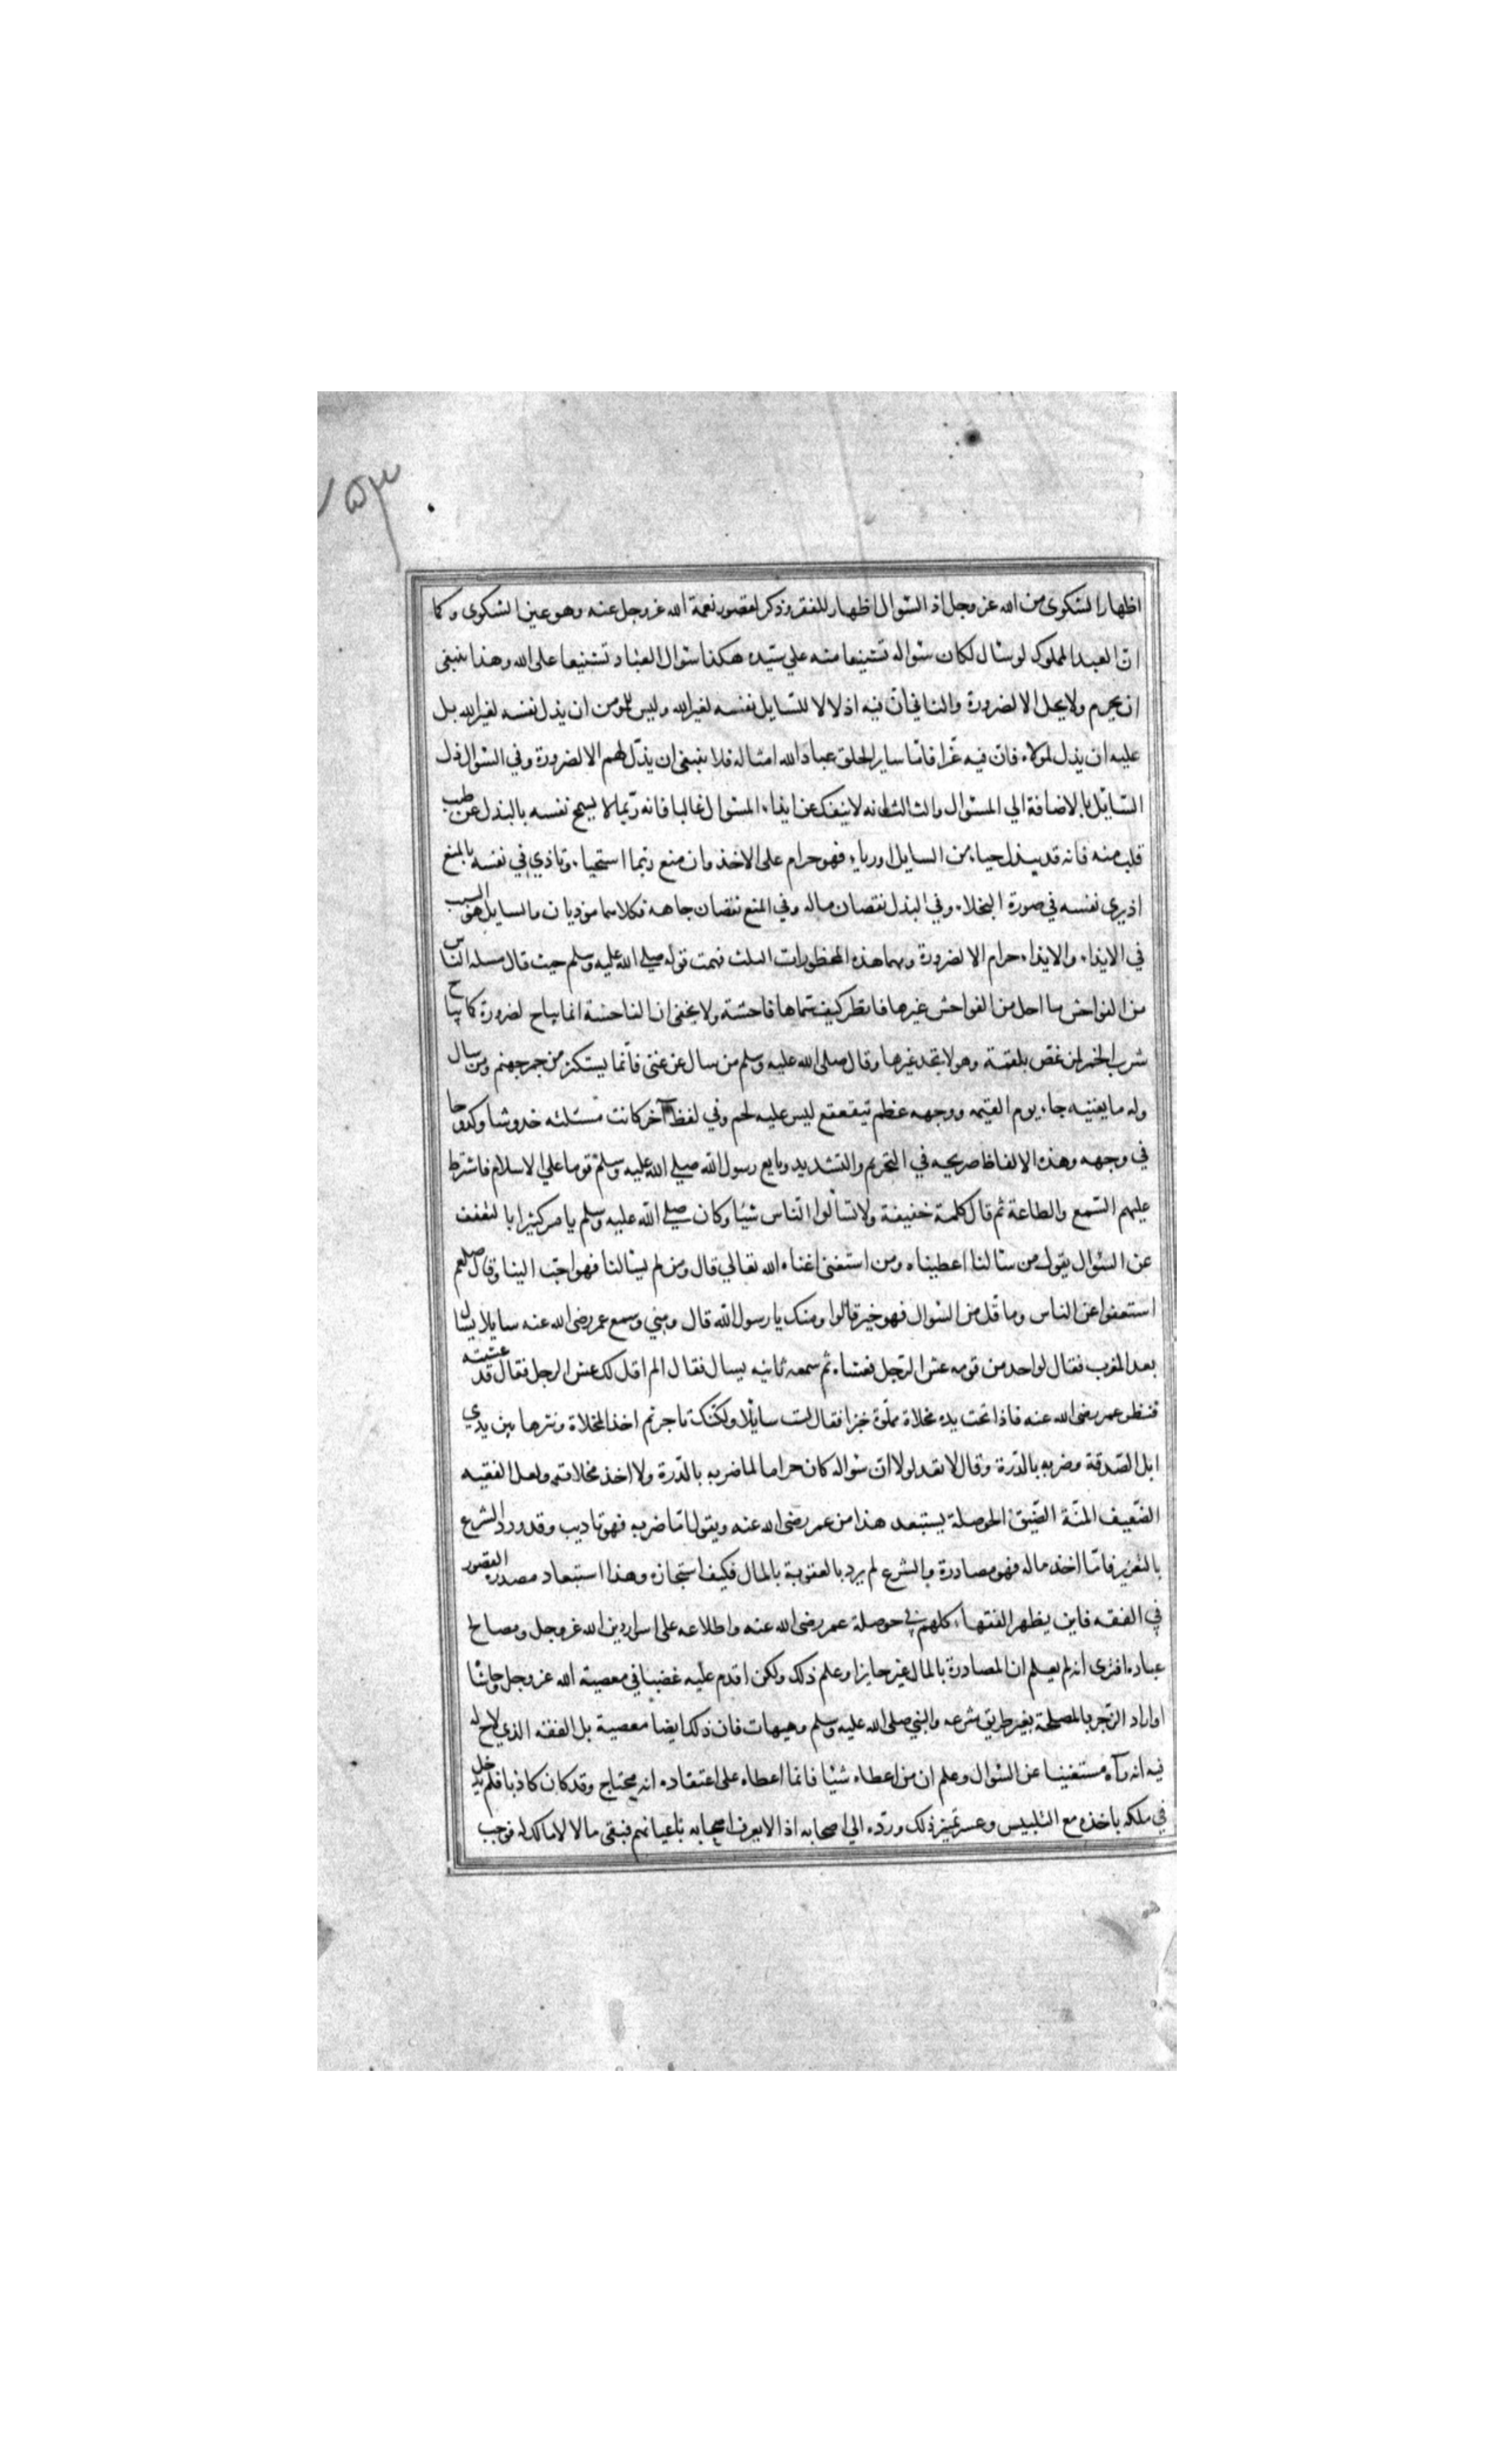 ٧٥٣
اظهار الشكوى من الله عز وجل اذ السّوال اظهار للفقر وذكر لقصور نعمة الله عز وجل عنه وهو عين الشكوى وكما
ان العبد المملوك لو سال لكان سؤاله تشنيعا منه علي سيّده هكذا سؤال العباد تشنيعا على الله وهذا ينبغي
ان يحرم ولا يحل الا لضرورة والثاني ان فيه اذلالا للسايل نفسه لغير الله وليس للمومن ان يذل نفسه لغير الله بل
عليه ان يذل لمولاه فان فيه عزّا فامّا ساير الخلق عباد الله امثاله فلا ينبغي ان يذلّ لهم الا لضرورة وفي السّوال ذل
السّايل بالاضافة الي المسئول والثالث انه لا ينفك عن ايذاء المسئول غالبا فانه ربّما لا يسمح نفسه بالبذل عن طيب
قلب منه فانه قد يبذل حياء من السايل او رياء فهو حرام على الاخذ وان منع ربّما استحيا وتاذي في نفسه بالمنع
اذ يرى نفسه في صورة البخلاء وفي البذل نقصان ماله وفي المنع نقصان جاهه فكلاهما موذيان والسايل هو السبب
في الايذاء والايذاء حرام الا لضرورة ومهما هذه المحظورات الثلث فهمت قوله صلي الله عليه وسلم حيث قال مسئله الناس
من الفواحش ما احل من الفواحش غيرها فانظر كيف سمّاها فاحشة ولا يخفى ان الفاحشة انما يباح لضرورة كما يباح
شرب الخمر لمن غصّ بلقمة وهو لا يجد غيرها وقال صلى الله عليه وسلم من سال عن غنى فانّما يستكثر من جمر جهنم ومن سال
وله ما يغنيه جاء يوم القيمه ووجهه عظم يتقعقع ليس عليه لحم وفي لفظ آخر كانت مسئلته خدوشا وكدوحا
في وجهه وهذه الالفاظ صريحه في التحريم والتشديد وبايع رسول الله صلي الله عليه وسلم قوما علي الاسلام فاشترط
عليهم السّمع والطاعة ثم قال كلمة خفيفة ولا تسألوا النّاس شيئا وكان صلي الله عليه وسلم يامر كثيرا بالتعفف
عن السّؤال يقول من سألنا اعطيناه ومن استغنى اغناه الله تعالي قال ومن لم يسالنا فهو احبّ الينا وقال صلعم
استعفوا عن الناس وما قلّ من السّوال فهو خير قالوا ومنك يا رسول الله قال ومني وسمع عمر رضى الله عنه سايلا يسال
بعد المغرب فقال لواحد من قومه عش الرّجل فعشاه ثم سمعه ثانيه يسال فقال الم اقل لك عش الرجل فقال قد عشيته
فنظر عمر رضى الله عنه فاذا تحت يده مخلاة مملوّة خبزا فقال لست سايلا ولكنّك تاجر ثم اخذ المخلاة ونثرها بين يدي
ابل الصّدقة وضربه بالدّرة وقال لا تعد لولا انّ سؤاله كان حراما لما ضربه بالدّرة ولا اخذ مخلاته ولعل الفقيه
الضّعيف المنّة الضّيق الحوصلة يستبعد هذا من عمر رضى الله عنه ويقول امّا ضربه فهو تاديب وقد ورد الشرع
بالتعزير فامّا اخذ ماله فهو مصادرة والشرع لم يرد بالعقوبة بالمال فكيف استجازه وهذا استبعاد مصدره القصور
في الفقه فاين يظهر الفقهاء كلهم في حوصلة عمر رضى الله عنه واطلاعه على اسرار دين الله عز وجل ومصالح
عباده افترى انه لم يعلم ان المصادرة بالمال غير جايز او علم ذلك ولكن اقدم عليه غضبا في معصية الله عز وجل وحاشا
او اراد الزّجر بالمصلحة بغير طريق شرعه والنبي صلى الله عليه وسلم وهيهات فان ذلك ايضا معصية بل الفقه الذي لاح له
فيه انه رآه مستغنيا عن السّؤال وعلم ان من اعطاه شيئا فانما اعطاه على اعتقاده انه محتاج وقد كان كاذبا فلم يدخل
في ملكه باخذه مع التلبيس وعسر تمييز ذلك وردّه الي اصحابه اذ لا يعرف اصحابه باعيانهم فبقى مالا لا مالك له فوجب